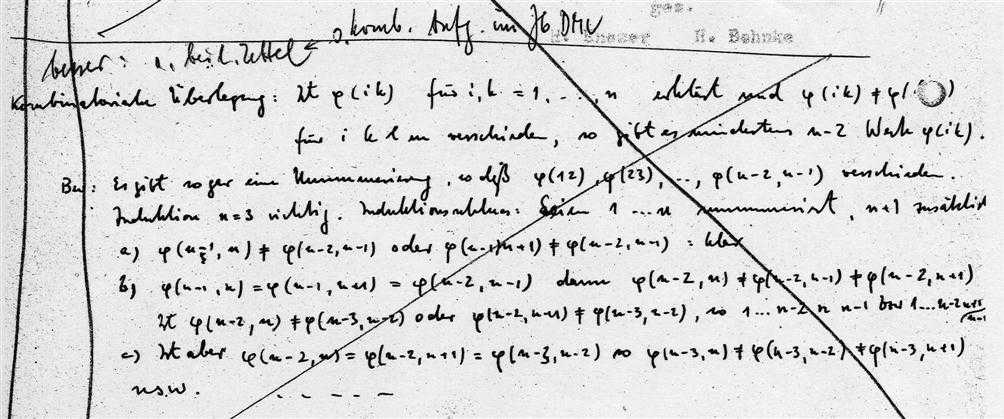 gez.
H. Kneser H. Behnke
s. komb. Aufg. im Jb. DMV
besser: s. beil. Zettel
Kombinatorische Überlegung: Ist φ(ik) für i,k = 1, ..., n erklärt und φ(ik) ≠ φ( )
für i k l m verschieden, so gibt es mindestens n-2 Werte φ(ik).
Bew: Es gibt sogar eine Nummerierung, sodaß φ(12), φ(23), .., φ(n-2, n-1) verschieden.
Induktion n=3 richtig. Induktionsschluss: Seien 1 ... n nummeriert, n+1 zusätzlich
a) φ(n-1, n) ≠ φ(n-2, n-1) oder φ(n-1, n+1) ≠ φ(n-2, n-1) : klar
b) φ(n-1, n) = φ(n-1, n+1) = φ(n-2, n-1) dann φ(n-2, n) ≠ φ(n-2, n-1) ≠ φ(n-2, n+1)
Ist φ(n-2, n) ≠ φ(n-3, n-2) oder φ(n-2, n+1) ≠ φ(n-3, n-2), so 1 ... n-2 n n-1 bzw 1 ... n-2 n+1 n-1
c) Ist aber φ(n-2, n) = φ(n-2, n+1) = φ(n-3, n-2) so φ(n-3, n) ≠ φ(n-3, n-2) ≠ φ(n-3, n+1)
usw. - - - - -